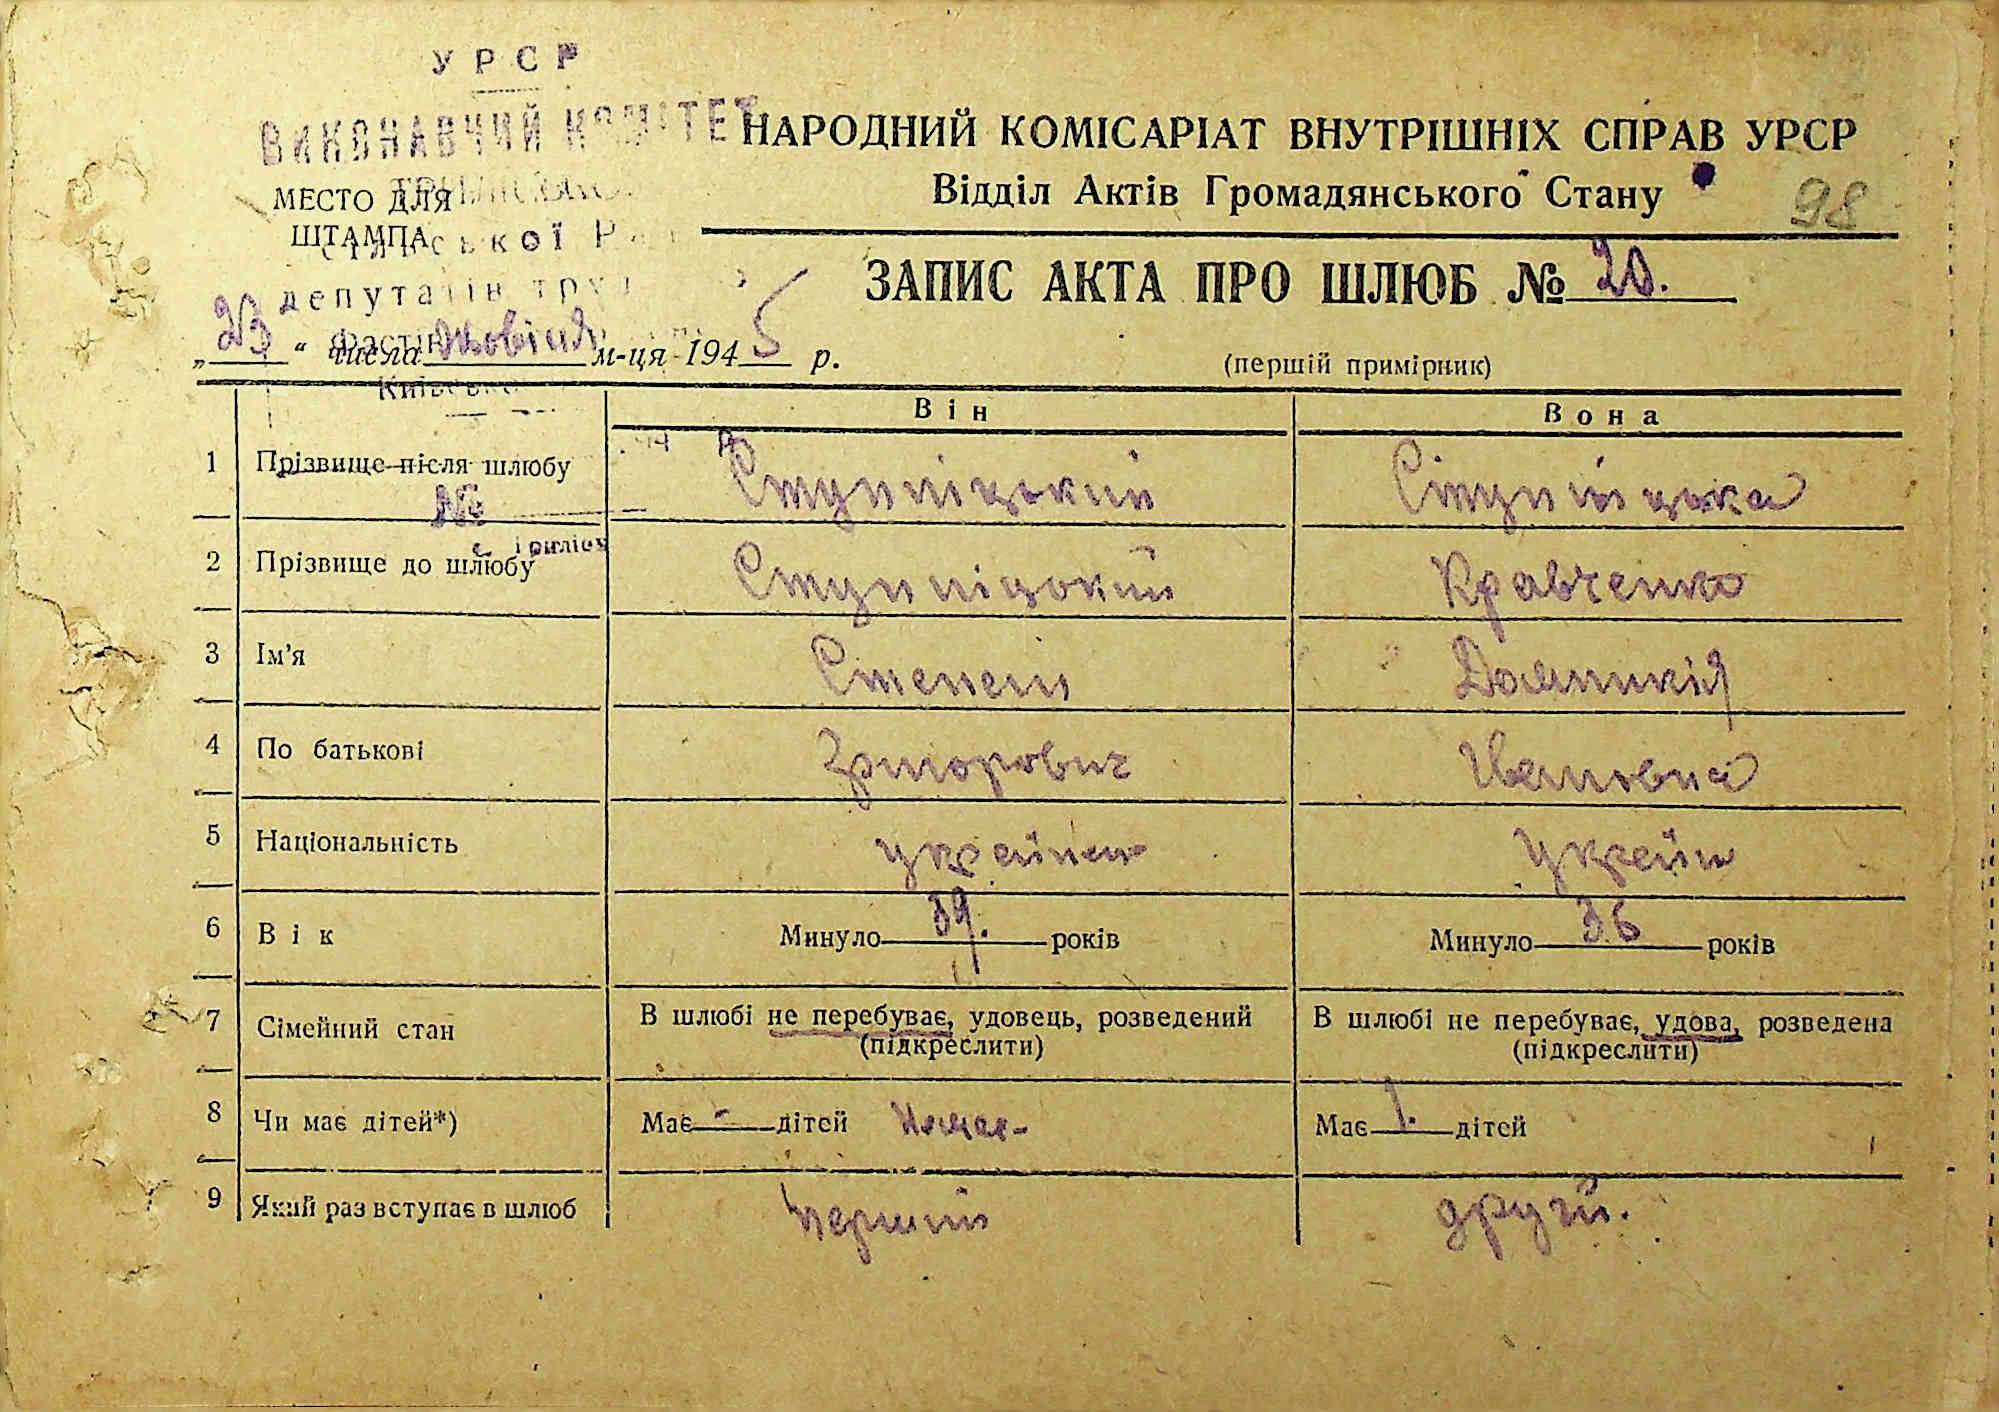 УРСР
ВИКОНАВЧИЙ КОМІТЕТ
НАРОДНИЙ КОМІСАРІАТ ВНУТРІШНІХ СПРАВ УРСР
Відділ Актів Громадянського Стану
98
МЕСТО ДЛЯ
ШТАМПА
депутатів
ЗАПИС АКТА ПРО ШЛЮБ № 20.
„23“ числа жовтня м-ця 1945 р.
(першій примірник)
Він Вона
1 Прізвище після шлюбу Ступніцький Ступніцька
№
2 Прізвище до шлюбу Ступніцький Кравченко
3 Ім'я Степан
4 По батькові Івановна
5 Національність
6 Вік Минуло 39. років Минуло 36 років
7 Сімейний стан В шлюбі не перебуває, удовець, розведений В шлюбі не перебуває, удова, розведена
(підкреслити) (підкреслити)
8 Чи має дітей*) Має - дітей Немає Має 1. дітей
9 Який раз вступає в шлюб перший другий.